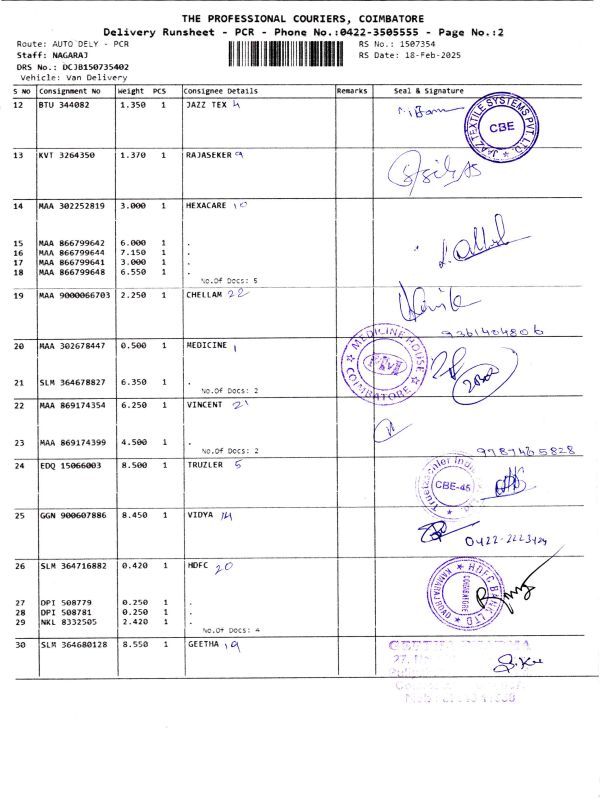 THE PROFESSIONAL COURIERS, COIMBATORE
Delivery Runsheet - PCR - Phone No.:0422-3505555 - Page No.:2
Route: AUTO DELY - PCR RS No.: 1507354
Staff: NAGARAJ RS Date: 18-Feb-2025
DRS No.: DCJB150735402
Vehicle: Van Delivery
S NO Consignment No Weight PCS Consignee Details Remarks Seal & Signature
12 BTU 344082 1.350 1 JAZZ TEX 4
JAZZ TEXTILE SYSTEMS PVT LTD. CBE
13 KVT 3264350 1.370 1 RAJASEKER 9
14 MAA 302252819 3.000 1 HEXACARE 10
15 MAA 866799642 6.000 1 .
16 MAA 866799644 7.150 1 .
17 MAA 866799641 3.000 1 .
18 MAA 866799648 6.550 1 .
No.Of Docs: 5
19 MAA 9000066703 2.250 1 CHELLAM 22
9361484806
20 MAA 302678447 0.500 1 MEDICINE 1
MEDICINE HOUSE COIMBATORE
21 SLM 364678827 6.350 1 .
No.Of Docs: 2
22 MAA 869174354 6.250 1 VINCENT 21
23 MAA 869174399 4.500 1 .
No.Of Docs: 2
9787465828
24 EDQ 15066003 8.500 1 TRUZLER 5
CBE-45
25 GGN 900607886 8.450 1 VIDYA 14
26 SLM 364716882 0.420 1 HDFC 20
HDFC BANK LTD COIMBATORE
27 DPI 508779 0.250 1 .
28 DPI 508781 0.250 1 .
29 NKL 8332505 2.420 1 .
No.Of Docs: 4
30 SLM 364680128 8.550 1 GEETHA 19
GEETHA